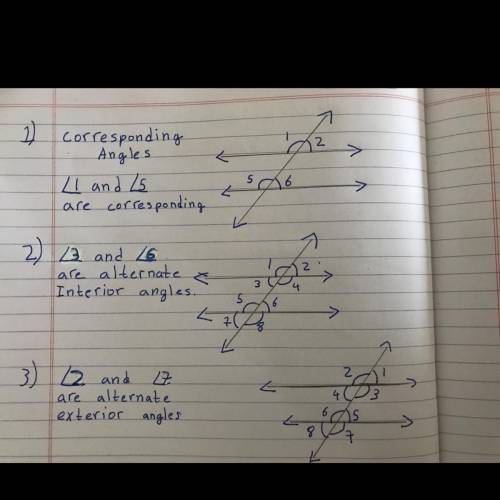 1) Corresponding
Angles
∠1 and ∠5
are corresponding
1 2
5 6
2) ∠3 and ∠6
are alternate
Interior angles.
1 2
3 4
5 6
7 8
3) ∠2 and ∠7
are alternate
exterior angles
2 1
4 3
6 5
8 7